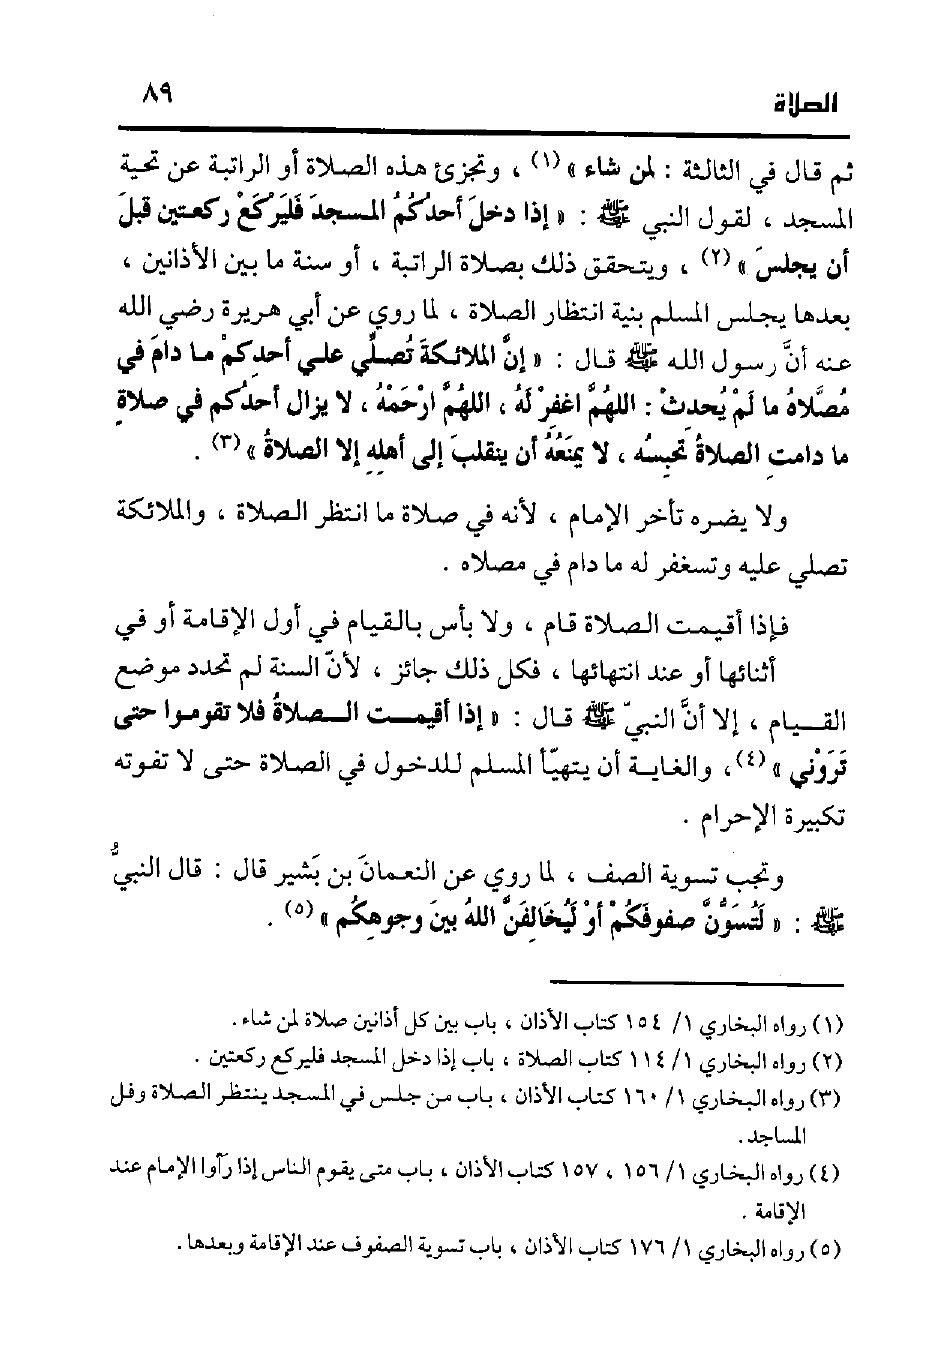 الصلاة ٨٩
ثم قال في الثالثة : لمن شاء » (١) ، وتجزئ هذه الصلاة أو الراتبة عن تحية
المسجد ، لقول النبي ﷺ : « إذا دخلَ أحدكُمُ المسجدَ فَليَركَعْ ركعتين قبلَ
أن يجلسَ » (٢) ، ويتحقق ذلك بصلاة الراتبة ، أو سنة ما بين الأذانين ،
بعدها يجلس المسلم بنية انتظار الصلاة ، لما روي عن أبي هريرة رضي الله
عنه أنَّ رسول الله ﷺ قال : « إنَّ الملائكةَ تُصلِّي على أحدِكمْ ما دامَ في
مُصَّلاهُ ما لَمْ يُحدِثْ : اللهُمَّ اغفِرْ لَهُ ، اللهُمَّ ارْحَمْهُ ، لا يزال أحدُكُم في صلاةٍ
ما دامتِ الصلاةُ تَحبِسُه ، لا يمنَعُهُ أن ينقلبَ إلى أهلِهِ إلا الصلاةُ » (٣) .
ولا يضره تأخر الإمام ، لأنه في صلاة ما انتظر الصلاة ، والملائكة
تصلي عليه وتستغفر له ما دام في مصلاه .
فإذا أقيمت الصلاة قام ، ولا بأس بالقيام في أول الإقامة أو في
أثنائها أو عند انتهائها ، فكل ذلك جائز ، لأنّ السنة لم تحدد موضع
القيام ، إلا أنَّ النبيّ ﷺ قال : « إذا أقيمت الصلاةُ فلا تقوموا حتى
تَرَوْني » (٤)، والغاية أن يتهيّأ المسلم للدخول في الصلاة حتى لا تفوته
تكبيرة الإحرام .
وتجب تسوية الصف ، لما روي عن النعمانَ بن بَشير قال : قال النبيُّ
ﷺ : « لَتُسَوُّنَّ صفوفَكُمْ أوْ لَيُخَالِفَنَّ اللهُ بينَ وجوهِكُم » (٥) .
(١) رواه البخاري ١/ ١٥٤ كتاب الأذان ، باب بين كل أذانين صلاة لمن شاء .
(٢) رواه البخاري ١/ ١١٤ كتاب الصلاة ، باب إذا دخل المسجد فليركع ركعتين .
(٣) رواه البخاري ١/ ١٦٠ كتاب الأذان ، باب من جلس في المسجد ينتظر الصلاة وفل
المساجد .
(٤) رواه البخاري ١/ ١٥٦ ، ١٥٧ كتاب الأذان ، باب متى يقوم الناس إذا رآوا الإمام عند
الإقامة .
(٥) رواه البخاري ١/ ١٧٦ كتاب الأذان ، باب تسوية الصفوف عند الإقامة وبعدها .